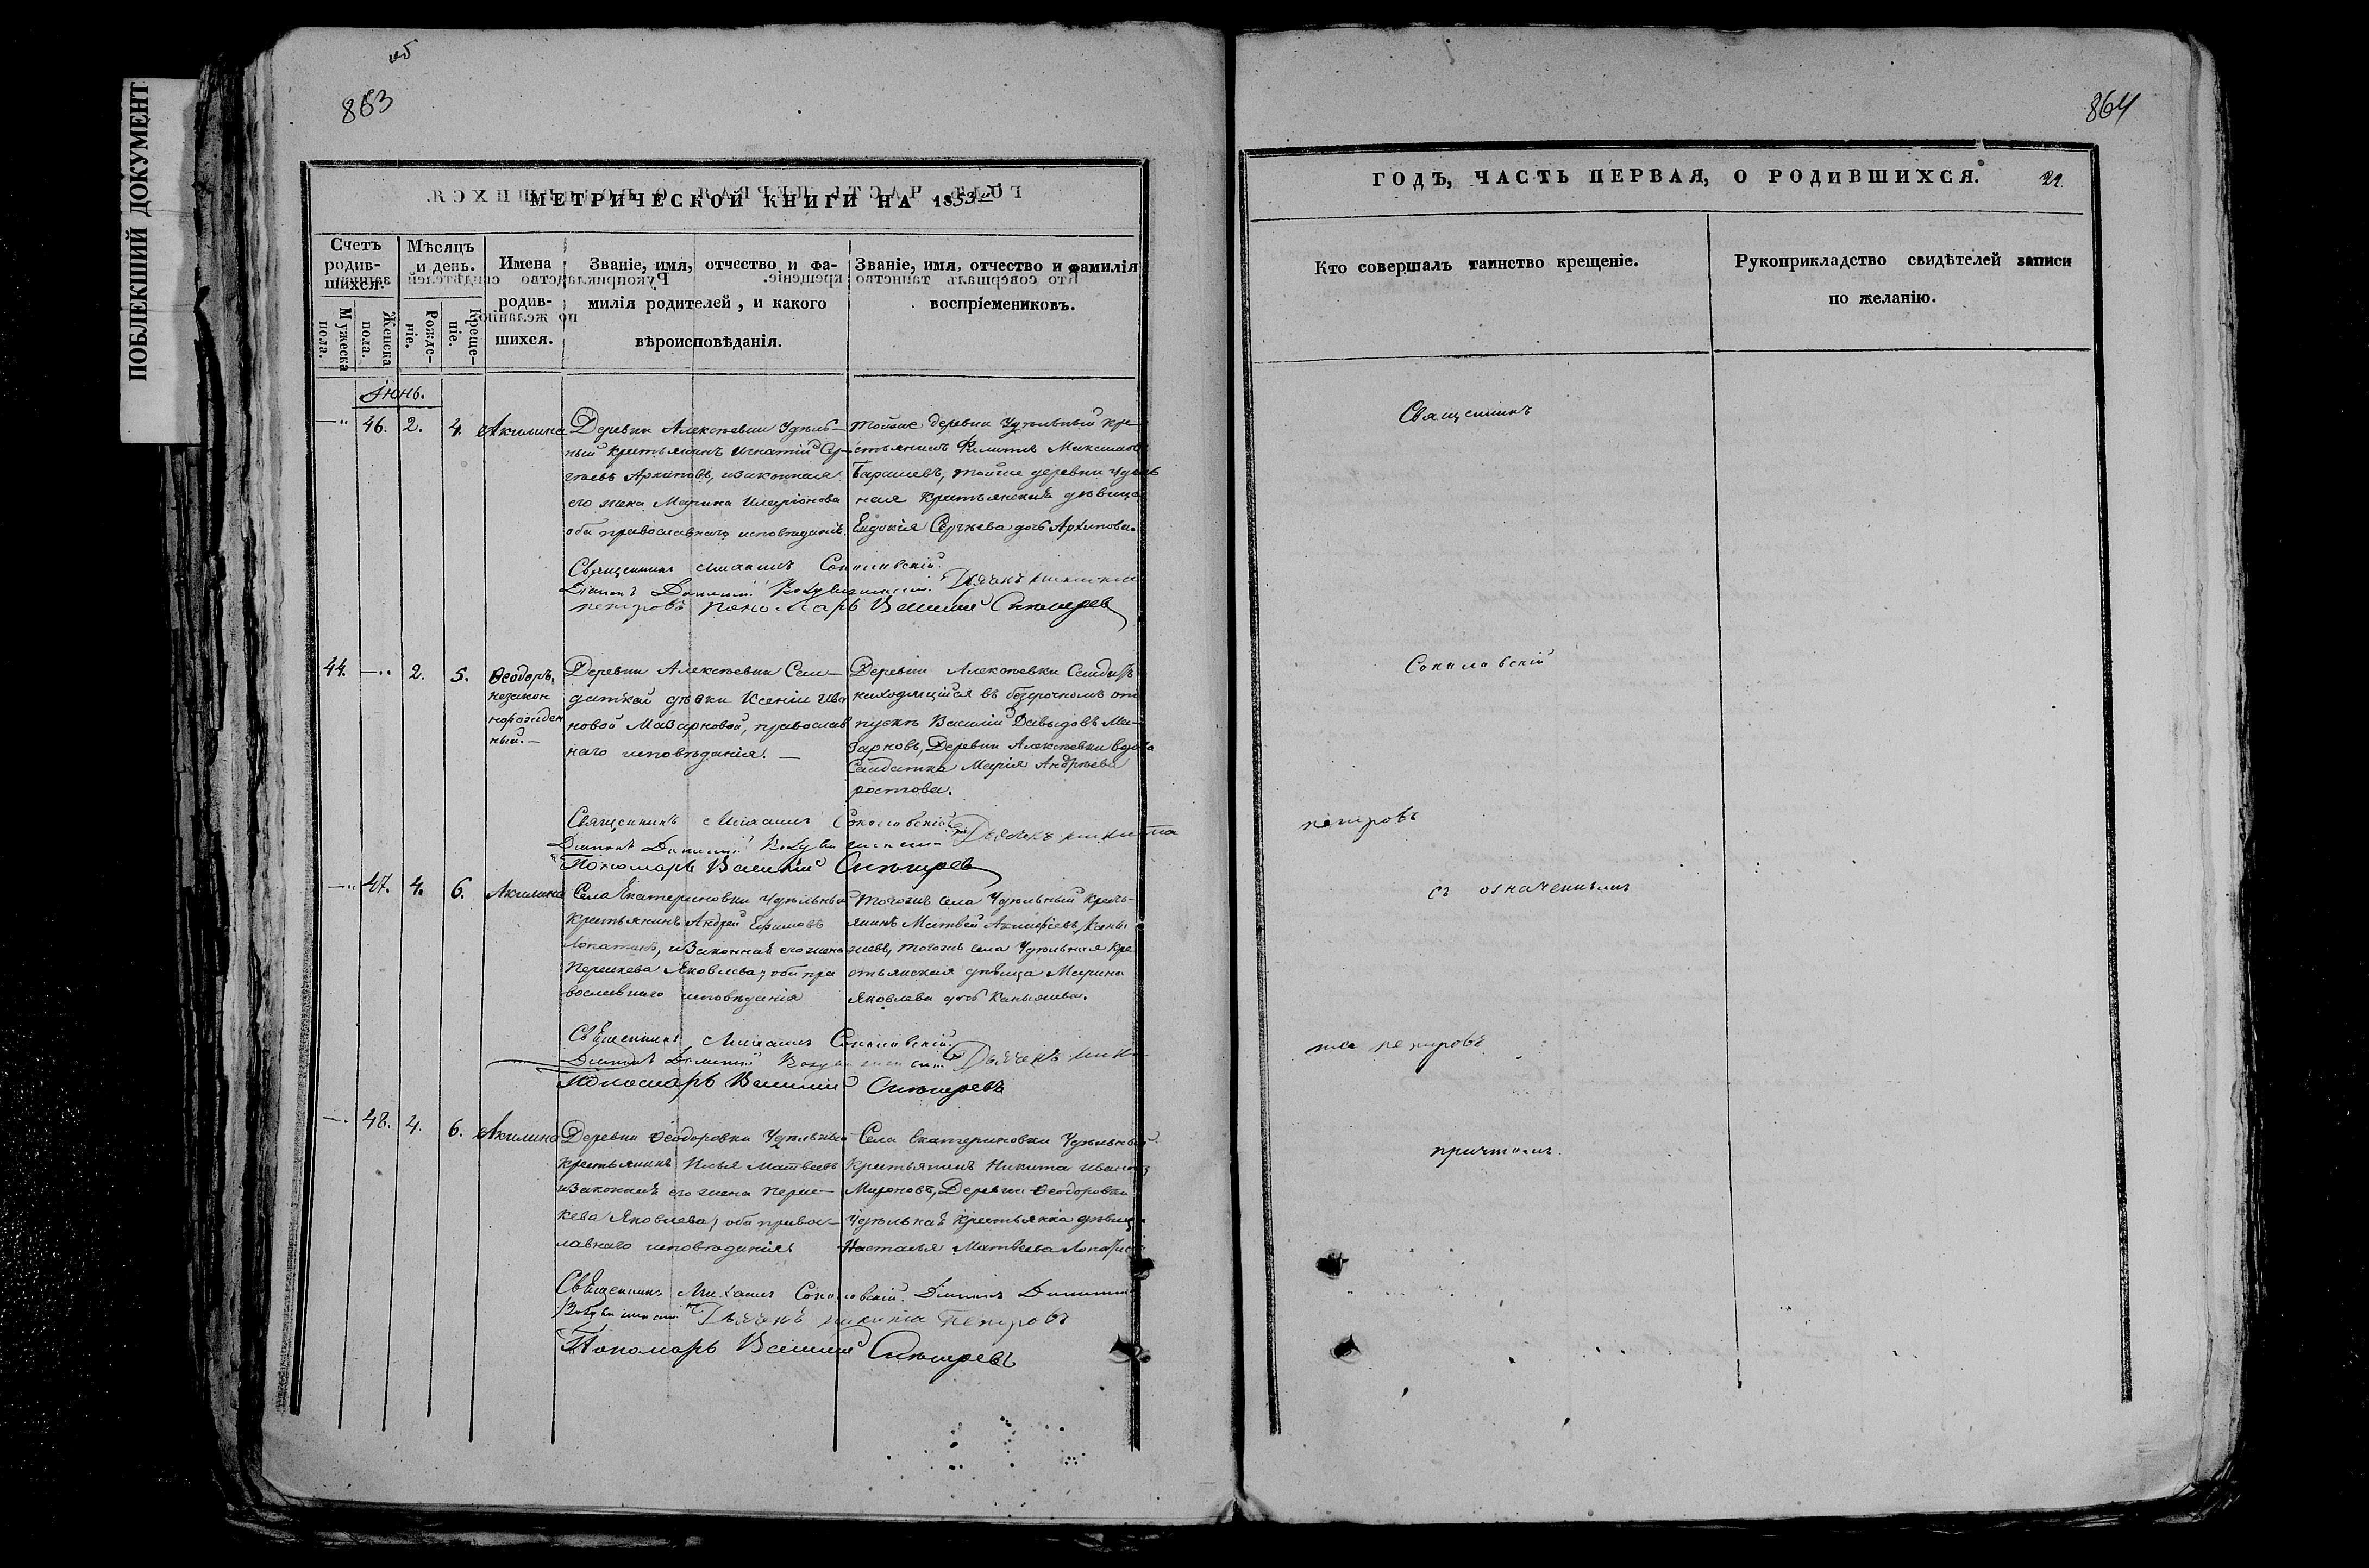 ПОБЛЕКШИЙ ДОКУМЕНТ
об
863
МЕТРИЧЕСКОЙ КНИГИ НА 1853
Счетъ родив-шихся.
Мѣсяцъ и день.
Имена родив-шихся.
Званіе, имя, отчество и фа-
милія родителей, и какого
вѣроисповѣданія.
Званіе, имя, отчество и фамилія
воспріемниковъ.
Мужеска пола.
Женска пола.
Рожде-ніе.
Креще-ніе.
Іюнь.
46. 2. 4. Акилина
Деревни Алексѣевки Удѣль-
ный крестьянинъ Игнатій Сер-
гѣевъ Архиповъ, изаконная
его жена Марина Иларіонова
оба православнаго исповѣданія.
тойже деревни Удѣльный кре-
стьянинъ Филипъ Максимовъ
Барашевъ, тойже деревни удѣль
ная крестьянская дѣвица
Евдокія Сергѣева дочь Архипова.
Священникъ Михаилъ Соколовскій.
Діаконъ Дьячекъ Никита
петровъ Пономарь Василій Снѣгирев
44. 2. 5. Ѳеодоръ,
незакон
норожден
ный.—
Деревни Алексѣевки Сол-
датской дѣвки Ксеніи Ива
новой Мазарковой, православ
наго исповѣданія.—
Деревни Алексѣевки Солдатъ
находящійся въ безсрочномъ от
пускѣ Василій Давыдовъ Ма-
зарковъ, Деревни Алексѣевки вдова
Солдатка Марія Андрѣева
ростова.
Священникъ Михаилъ Соколовскій
Діаконъ Дьячекъ никита
Пономарь Василій Снѣгирев
47. 4. 6. Акилина
Села Екатериновки Удѣльный
Крестьянинъ Андрей Ефимовъ
Лопатинъ, изаконная его жена
Перескева Яковлева, оба пра
вославнаго исповѣданія
тогожъ села Удѣльный кресть-
янинъ Матвей
тогожъ села Удѣльная кре
стьянская дѣвица Марина
Яковлева дочь Канышева.
Священникъ Михаилъ Соколовскій.
Діаконъ Дьячекъ ники
Пономарь Василій Снѣгиревъ
48. 4. 6. Акилина
Деревни Ѳеодоровки Удѣльный
крестьянинъ Илья Матвеевъ
изаконная его жена Перас-
кева Яковлева, оба правос-
лавнаго исповѣданія
Села Екатериновки Удѣльный
Крестьянинъ Никита Ивановъ
Мироновъ, Деревни Ѳеодоровки
Удѣльная крестьянка дѣвица
Настасья Матвеева
Священникъ Михаилъ Соколовскій. Діаконъ
Дьячекъ никита Петровъ
Пономарь Василій Снѣгиревъ
864
ГОДЪ, ЧАСТЬ ПЕРВАЯ, О РОДИВШИХСЯ.
22.
Кто совершалъ таинство крещеніе.
Рукоприкладство свидѣтелей записи
по желанію.
Священникъ
Соколовскій
петровъ
съ означеннымъ
та петровъ
причтомъ.